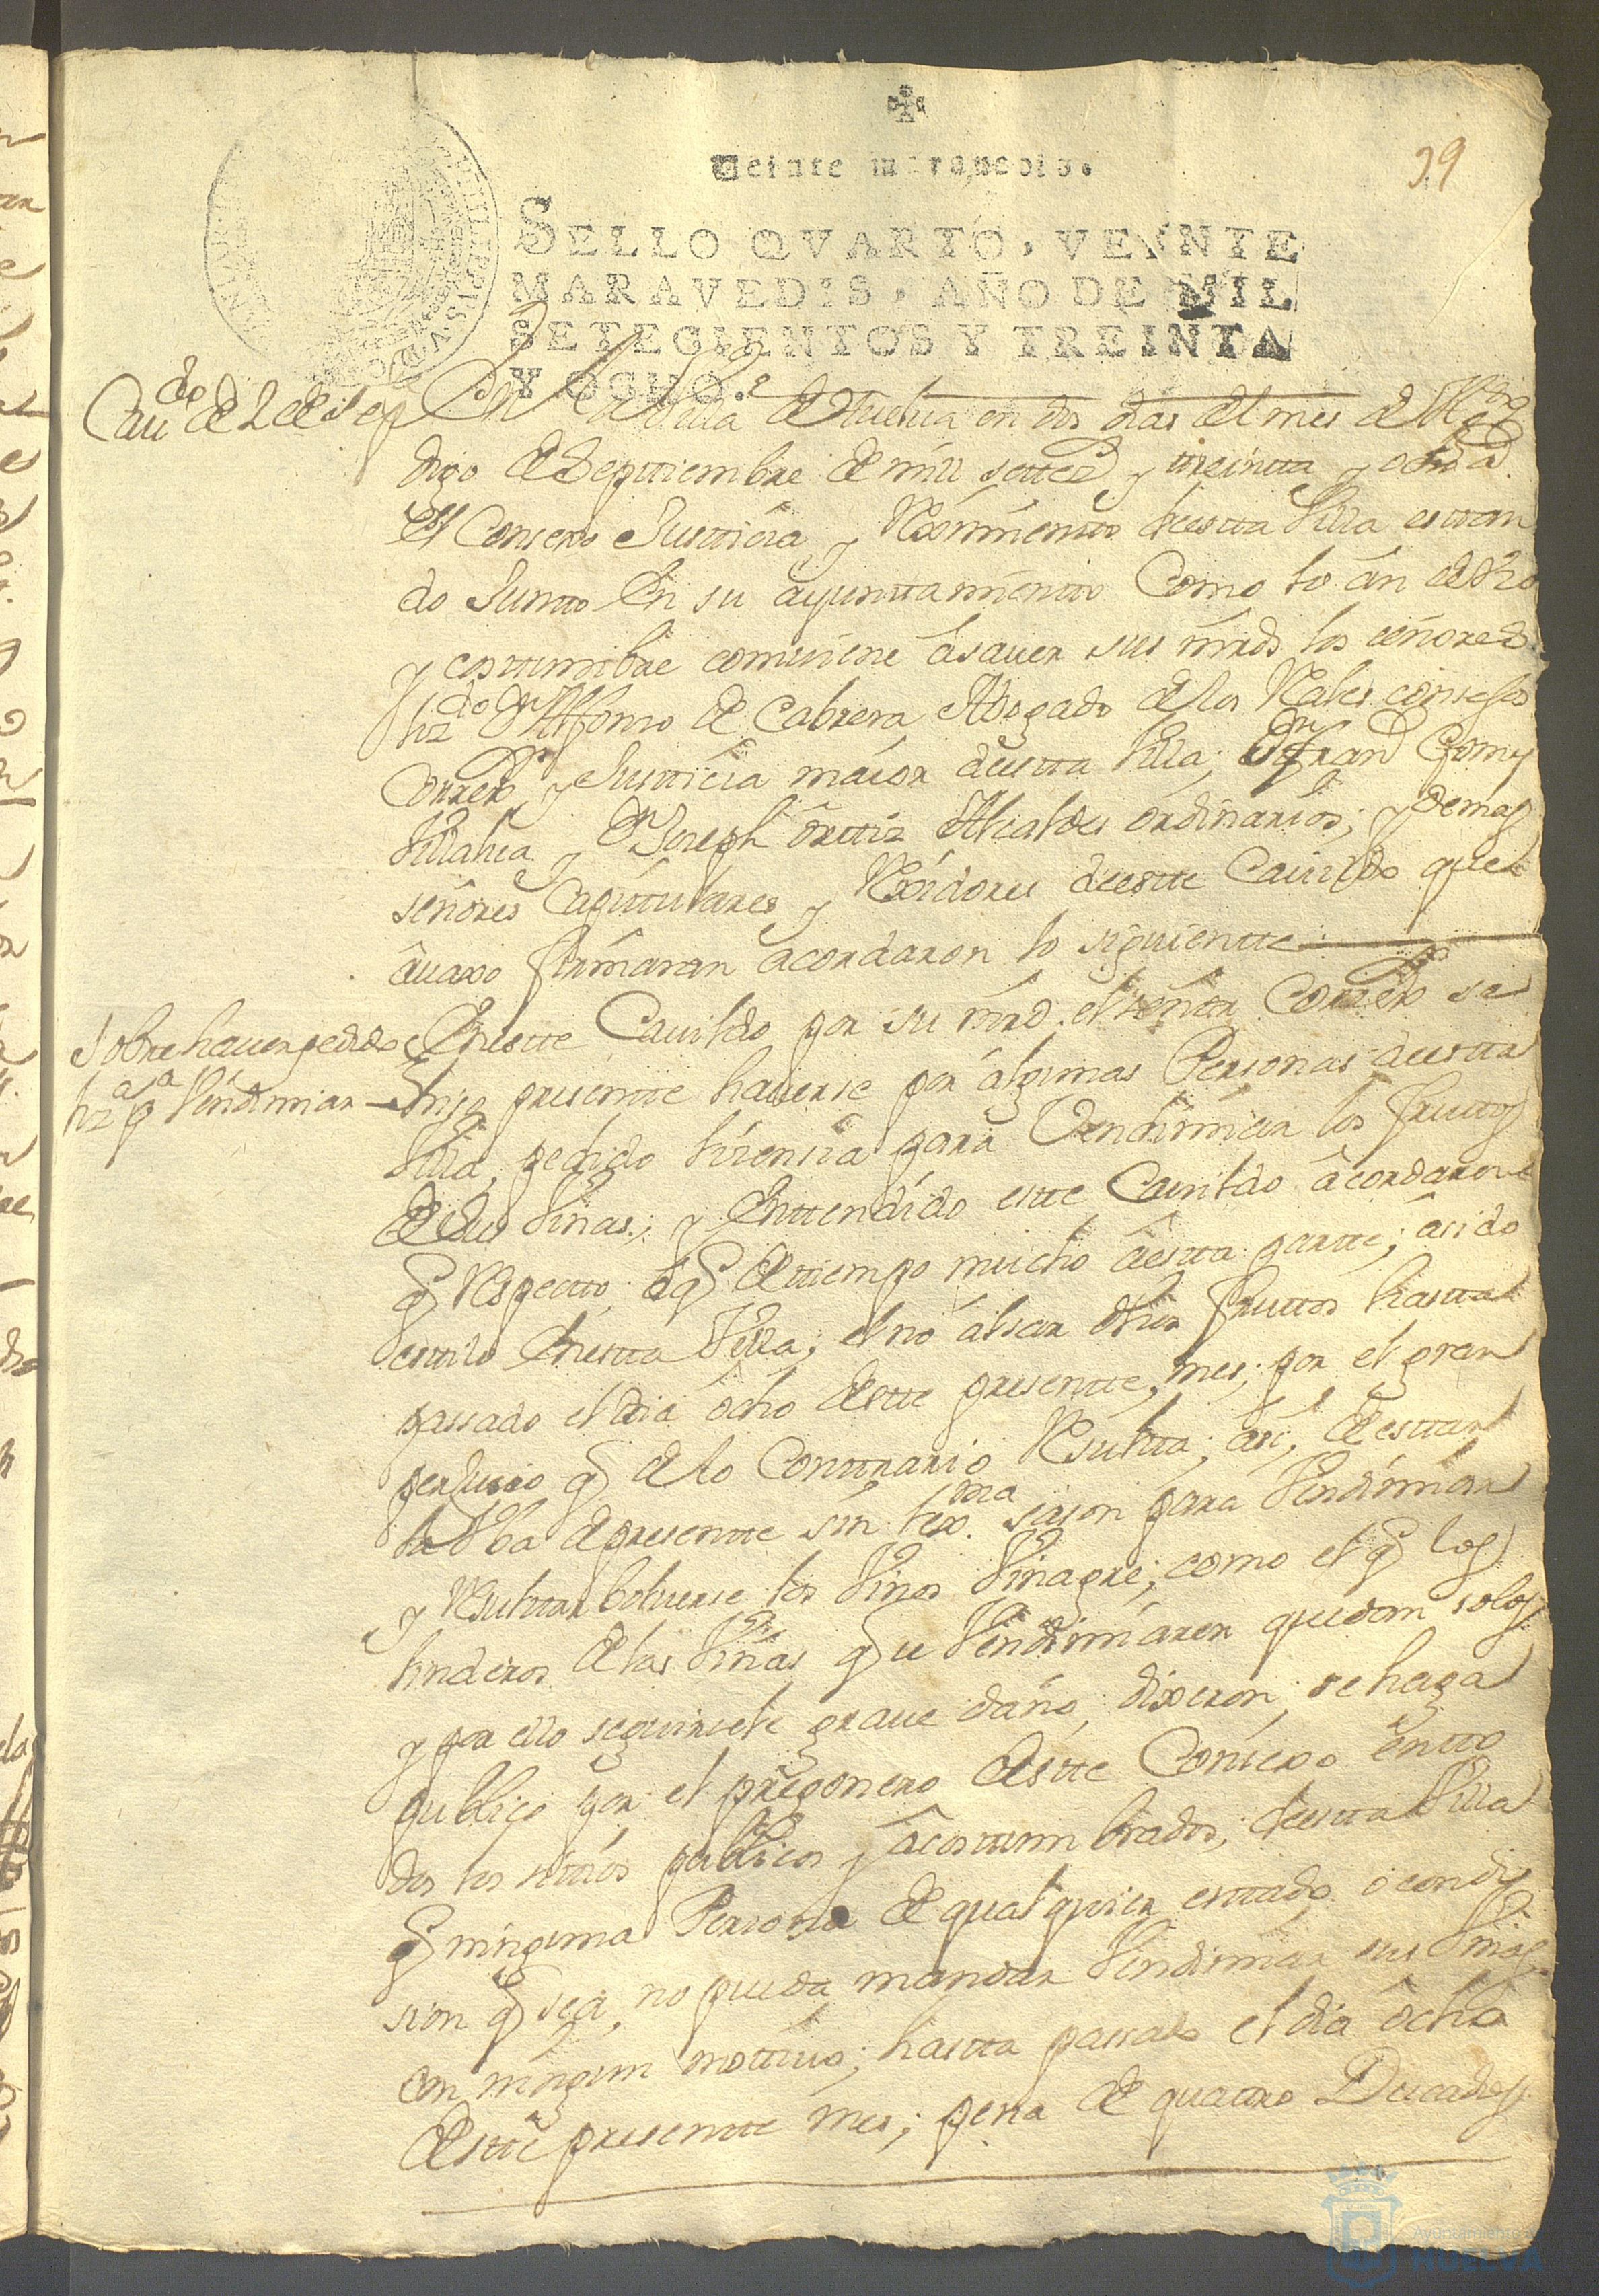 39
Veinte maravedis.
SELLO QVARTO, VEYNTE
MARAVEDIS, AÑO DE MIL
SETECIENTOS Y TREINTA
Y OCHO.
Caudo de 2 de Sep
En la Villa de Huelua en dos dias del mes de
digo de Septtiembre de mill settezs y treintta y ocho as
el Consexo Justticia y Reximientto deestta Villa esttan
do Juntto En su ayunttamientto Como lo an de Vso
y costtumbre combiene âsauer sus mrds. los señores
lizdo Dn Alfonso de Cabrera Abogado de los Rales. consejos
Correxor y Justticia maior deestta Villa; Dn Franco Gomz
Villalua y Dn Joseph Orttiz Alcaldes ordinarios; y demas
señores Capittulares y Rexidores deestte Cauildo que
âuaxo firmaran acordaron lo siguientte
Sobre hauer pedido
liza pa Vendimiar
Enestte Cauildo por su mrd. el señor Correxor se
hizo presentte hauerse por algunas Personas deestta
Villa, pedido lizencia para Vendimiar los fruttos
de sus Viñas; y Enttendido estte Cauildo acordaron
q Respectto, aq de ttiempo mucho aestta partte; âsido
esttilo Enestta Villa; el no alsar dhos fruttos hastta
passado el dia ôcho destte presentte, mes; por el gran
perjuicio q de lo Conttrario Resultta; asi, de esttar
la Vba depresentte sin lexma. sason para Vendimiar
y Resulttar boluerse los Vinos Vinagre; como el q los
linderos de las Viñas q se Vendimiaren quedan solos
y por ello seguirsele graue daño; dixeron; se haga
publico por el pregonero destte Consexo entto
dos los sittios publicos y âcosttumbrados; deestta Villa
q ninguna Persona de qualquier esttado o condi
sion q sea, no pueda mandar Vendimiar sus Viñas
con ningun mottiuo; hastta passado el dia ôcho
destte presentte mes; pena de quattro Ducados
Ayuntamiento
HUELVA